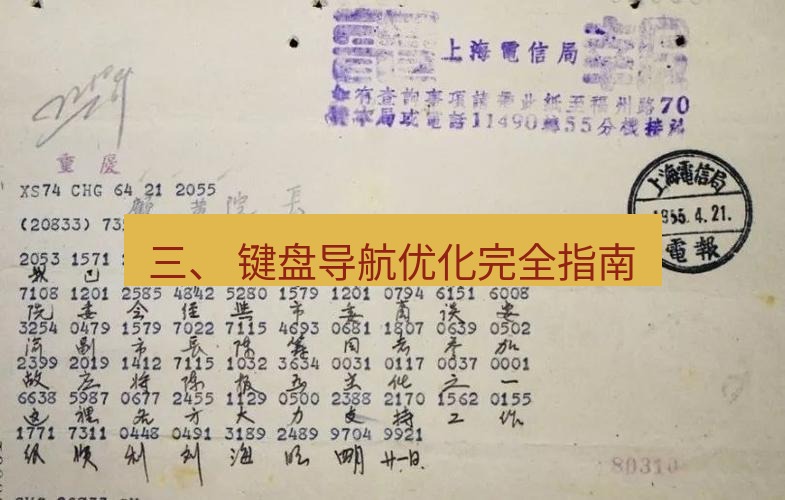 上海電信局
如有查詢事項請帶此紙至福州路70
號本局或電話11490轉55分機接洽
重慶
XS74 CHG 64 21 2055
院長
(20833) 73
上海電信局
1955.4.21.
電報
三、 键盘导航优化完全指南
2053 1571 2
7108 1201 2585 4842 5280 1579 1201 0794 6151 6008
院委会经与市委商谈妥
3254 0479 1579 7022 7115 4693 0681 1807 0639 0502
副市長陈 同志参加
2399 2019 1412 7115 1032 3634 0031 0117 0037 0001
故应将陈报五主任之一
6638 5987 0677 2455 1129 0500 2388 2170 1562 0155
这裡各方大力支持工作
1771 7311 0448 0491 3189 2489 9704 9921
很顺利 海 廿一日
80310